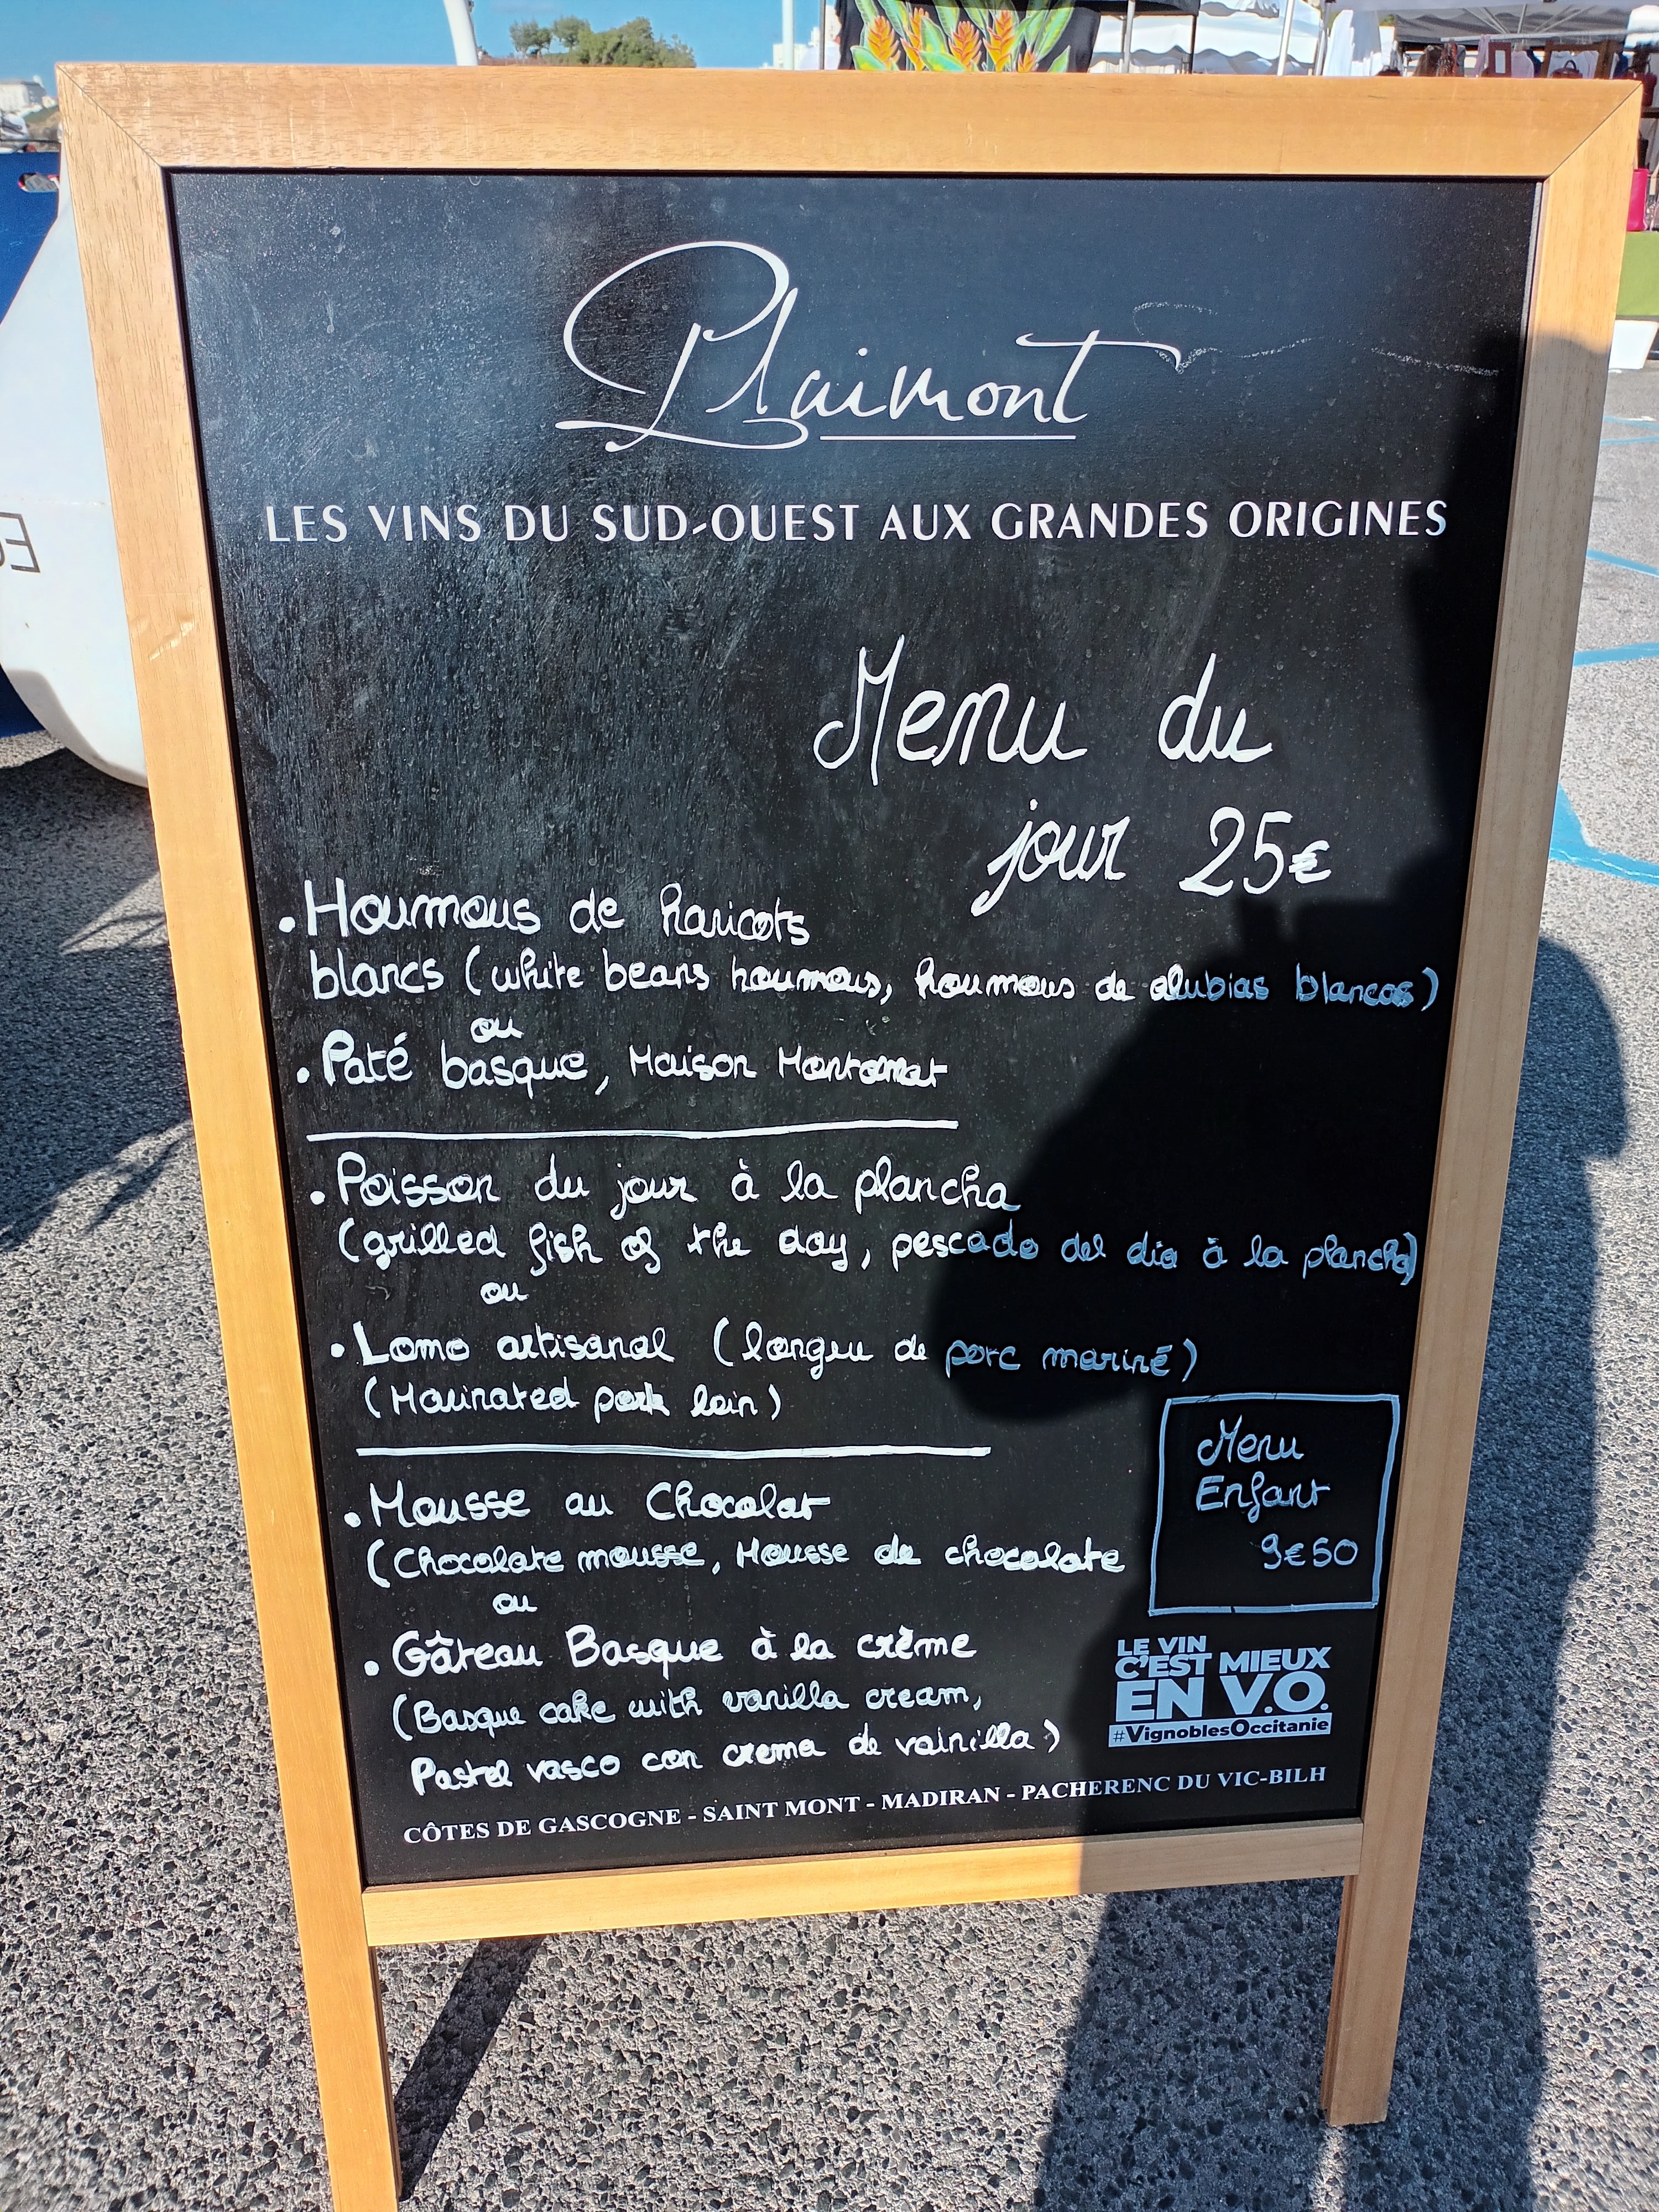 Plaimont
LES VINS DU SUD-OUEST AUX GRANDES ORIGINES
Menu du
jour 25€
• Houmous de haricots
blancs (white beans houmous, houmous de alubias blancos)
ou
• Paté basque, Maison Montomat
• Poisson du jour à la plancha
(grilled fish of the day, pescado del dia à la plancha)
ou
• Lomo artisanal (longeu de porc mariné)
(Marinated pork loin)
• Mousse au Chocolat
(Chocolate mousse, Mousse de chocolate
ou
• Gâteau Basque à la crème
(Basque cake with vanilla cream,
Pastel vasco con crema de vainilla)
Menu
Enfant
9€50
LE VIN
C'EST MIEUX
EN V.O.
#VignoblesOccitanie
CÔTES DE GASCOGNE - SAINT MONT - MADIRAN - PACHERENC DU VIC-BILH